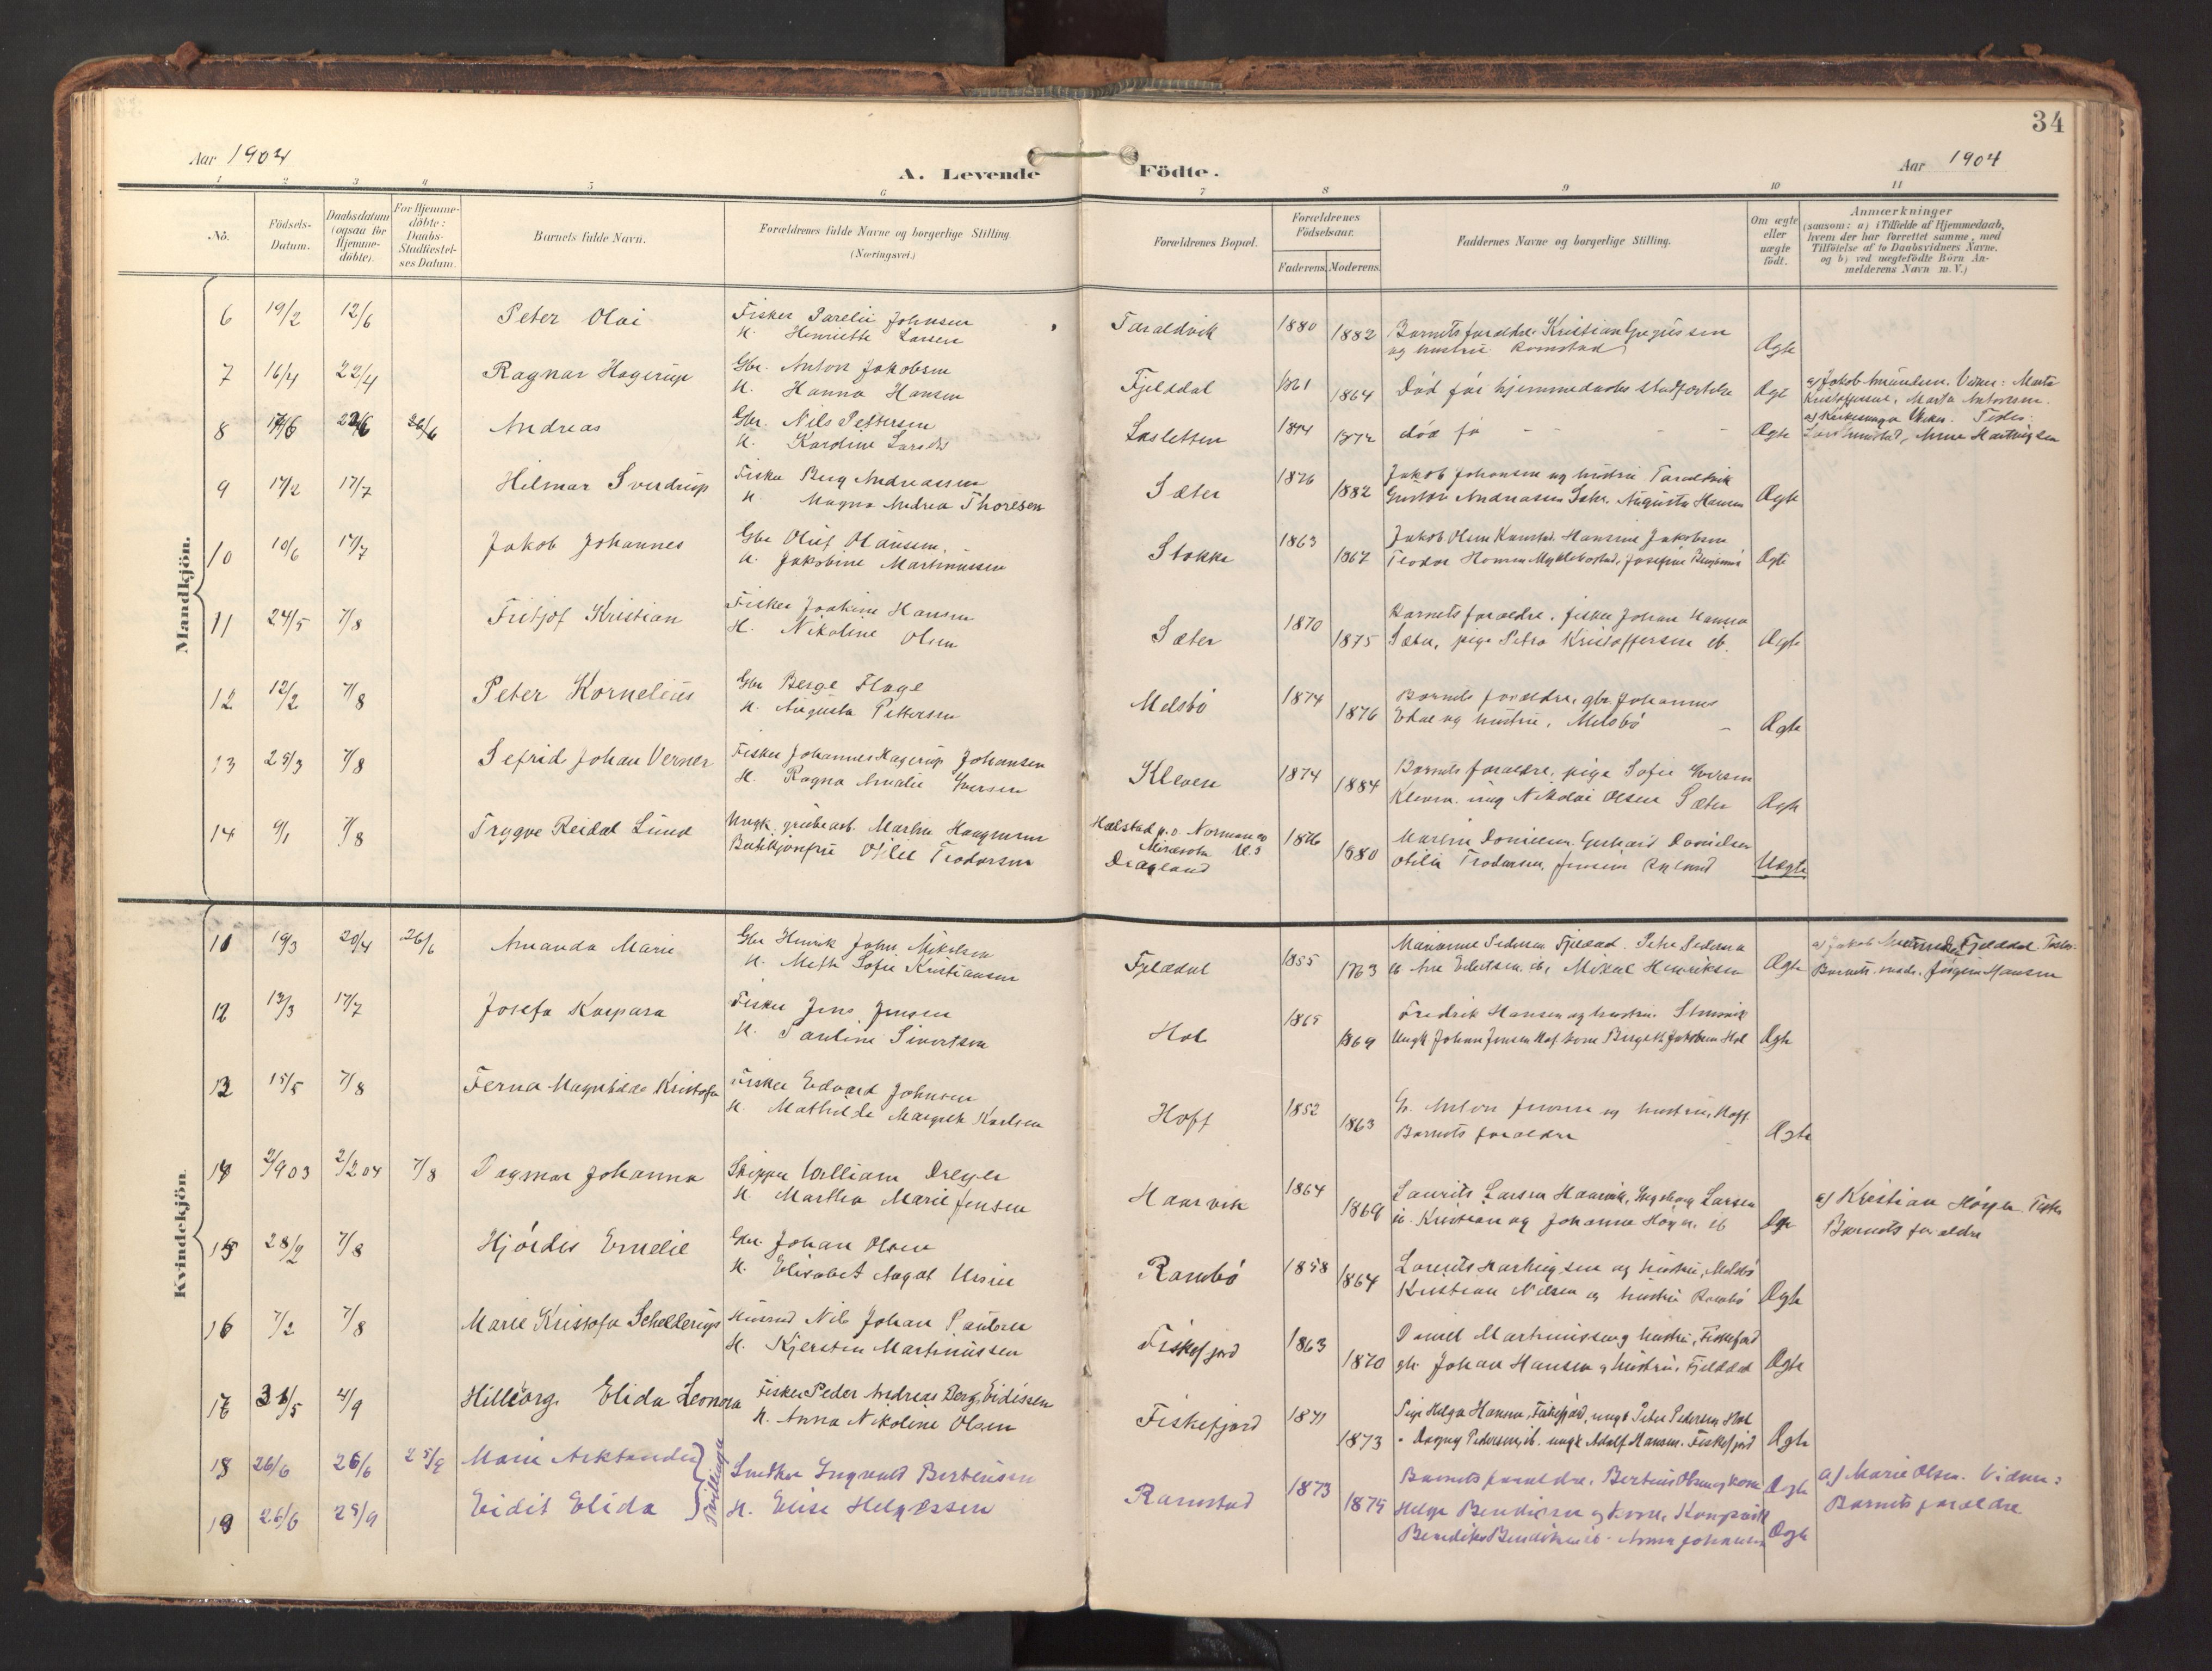 34
Aar 1904
A. Levende Födte.
Aar 1904
1 2 3 4 5 6 7 8 9 10 11
No.
Födsels-Datum.
Daabsdatum (ogsaa for Hjemme-döbte).
For Hjemme-döbte: Daabs-Stadfæstel-ses Datum.
Barnets fulde Navn.
Forældrenes fulde Navne og borgerlige Stilling. (Næringsvei.)
Forældrenes Bopæl.
Forældrenes Födselsaar.
Faderens. Moderens.
Faddernes Navne og borgerlige Stilling.
Om ægte eller uægte født.
Anmærkninger
(saasom: a) i Tilfælde af Hjemmedaab,
hvem der har forrettet samme, med
Tilföielse af to Daabsvidners Navne,
og b) ved uægtefödte Börn An-
melderens Navn m. V.)
Mandkjön.
6 19/2 12/6 Peter Olai Fisker Parelii Johnsen
H. Henriette Larsen
Taraldvik 1880 1882 Barnets foraldre. Kristian
og hustru Ramstad Ægte
7 16/4 22/4 Ragnar Hagerup Gbr. Anton Jakobsen
H. Hanna Hansen
Fjeldal 1861 1864 Død før hjemmedaabs stadfæstelse Ægte a) Jakob Vidner: Marta
Marta Antonsen.
8 Andreas Gbr. Nils Pettersen
H. Karoline
1874 død før - - - Ægte
9 17/2 17/7 Hilmar Sverdrup Fisker Berg Andreassen
H. Magna Andrea Thoresen
Sæter 1876 1882 Jakob Johansen og hustru Taraldvik
Andreasen Augusta Hansen Ægte
10 10/6 17/7 Jakob Johannes Gbr Oluf Olausen.
H. Jakobine Martinussen
Stokke 1863 1867 Jakob Olsen Hansine Jakobsen
Teodor Hansen Myklebostad, Josefine Ægte
11 24/5 7/8 Fritjof Kristian Fisker Joakim Hansen
H. Nikoline Olsen
Sæter 1870 1875 Barnets foraldre, fisker Johan Hansen
Sæter, pige Petra Kristoffersen ib. Ægte
12 12/2 7/8 Peter Kornelius Gbr Berge Flage
H. Augusta Pettersen
Melsbö 1874 1876 Barnets foraldre, gbr Johannes
og hustru, Melsbö Ægte
13 25/3 7/8 Sefrid Johan Verner Fisker Johannes Hagerup Johansen
H. Ragna Amalie Iversen
Kleven 1874 1884 Barnets foraldre, pige Sofie Iversen
Kleven. ung Nikolai Olsen Sæter Ægte
14 9/1 7/8 Trygve Reidal Lund Ungk. grubearb. Martin
Teodorsen
Halstad p.o. Norman co
Minesota U.S
Dragland
1876 1880 Martin Danielsen Gerhard Danielsen
Teodorsen, Uægte
Kvindekjön.
11 19/3 20/4 26/6 Amanda Marie Gbr Henrik John Mikalsen
H. Meth Sofie Kristiansen
Fjeldal 1855 1863 Marianne Pedersen Fjeldal. Peder Pedersen
ib Ane Edvertsen. ib, Mikal Henriksen Ægte a) Jakob Fjeldal
Barnets moder. Jørgen Hansen
12 13/3 17/7 Josefa Kaspara Fisker Jens Jensen
H. Pauline Sivertsen
Hol 1865 1869 Fredrik Hansen og hustru
Ungk Johan Jensen Hof kone Birgith Jakobsen Hol Ægte
13 15/5 7/8 Ferna Magnhilda Kristofa Fisker Edvard Johnsen
H. Mathilde Margreth Karlsen
Hoff 1852 1863 Gbr Anton Jensen og hustru, Hoff
Barnets foraldre Ægte
14 2/9 03 2/2 04 7/8 Dagmar Johanna Skipper William Dreyer
H. Martha Marie Jensen
Haarvik 1864 1869 Laurits Larsen Haarvik, Ingeborg Larsen
ib. Kristian og Johanna Høyer. ib Ægte a) Kristian Høyer
Barnets foraldre
15 28/2 7/8 Hjördis Emelie Gbr. Johan Olsen
H. Elisabet Aagot Ursin
Rambö 1858 1864 Laurits Hartvigsen og hustru, Melsbö
Kristian Nilsen og hustru Rambö Ægte
16 7/2 7/8 Marie Kristofa Schelderup Husmd Nils Johan Paulsen
H. Kjersten Martinussen
Fiskefjord 1863 1870 Daniel Martinussen og hustru, Fiskefjord
gbr. Johan Hansen og hustru, Fjeldal Ægte
17 31/5 4/9 Hilleborg Elida Leonora Fisker Peder Andreas Berg Eidissen
H. Anna Nikoline Olsen
Fiskefjord 1871 1873 Pige Helga Hansen, Fiskefjord, ungk Peter Pedersen Hol
" Dagny Pedersen, ib. ungk Adolf Hansen. Fiskefjord Ægte
18 26/6 26/6 25/9 Marie Arktander
19 26/6 25/9 Eidit Elida
Tvillinger
Snedker Ingvald Bertensen
H. Elise Helgessen
Ramstad 1873 1879 Barnets foraldre. Bertinus Olsen og kone Ægte
Helge Bendiksen og kone, Kongsvik
Bendik Bendiksen ib. Anna Johansen Ægte
a) Marie Olsen. Vidner:
Barnets foraldre